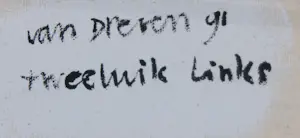 van Dreven 91
tweeluik Links